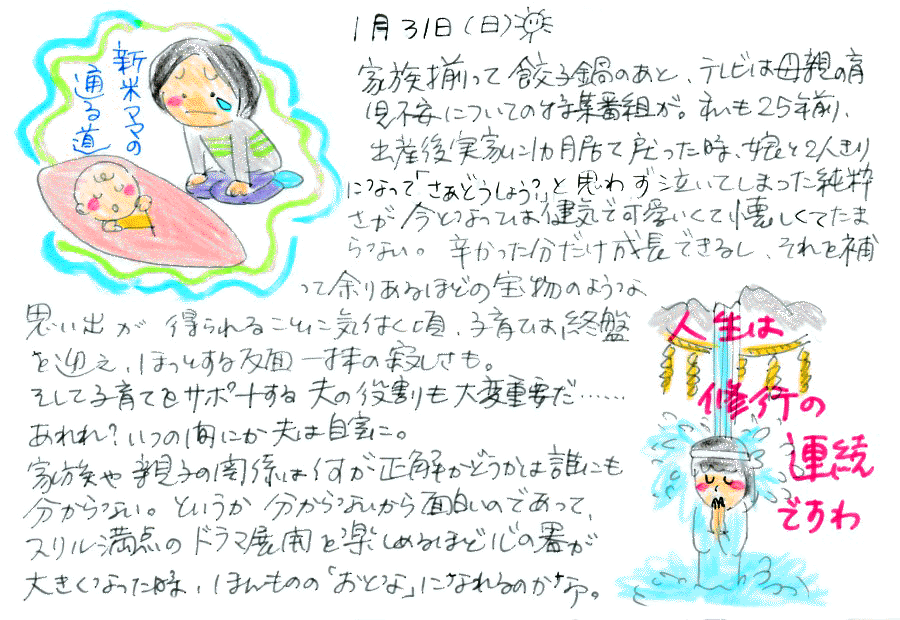 1月31日(日)
新米ママの
通る道
家族揃って餃子鍋のあと、テレビは母親の育
児不安についての特集番組が。私も25年前、
出産後実家に1カ月居て戻った時、娘と2人きり
になって「さあどうしよう?」と思わず泣いてしまった純粋
さが今となっては健気で可愛いくて懐しくてたま
らない。辛かった分だけ成長できるし、それを補
って余りあるほどの宝物のような
思い出が得られることに気付く頃、子育ては終盤
を迎え、ほっとする反面一抹の寂しさも。
そして子育てをサポートする夫の役割も大変重要だ……
あれれ?いつの間にか夫は自室に。
家族や親子の関係は何が正解かどうかは誰にも
分からない。というか分からないから面白いのであって、
スリル満点のドラマ展開を楽しめるほど心の器が
大きくなった時、ほんものの「おとな」になれるのかなァ。
人生は
修行の
連続
ですわ